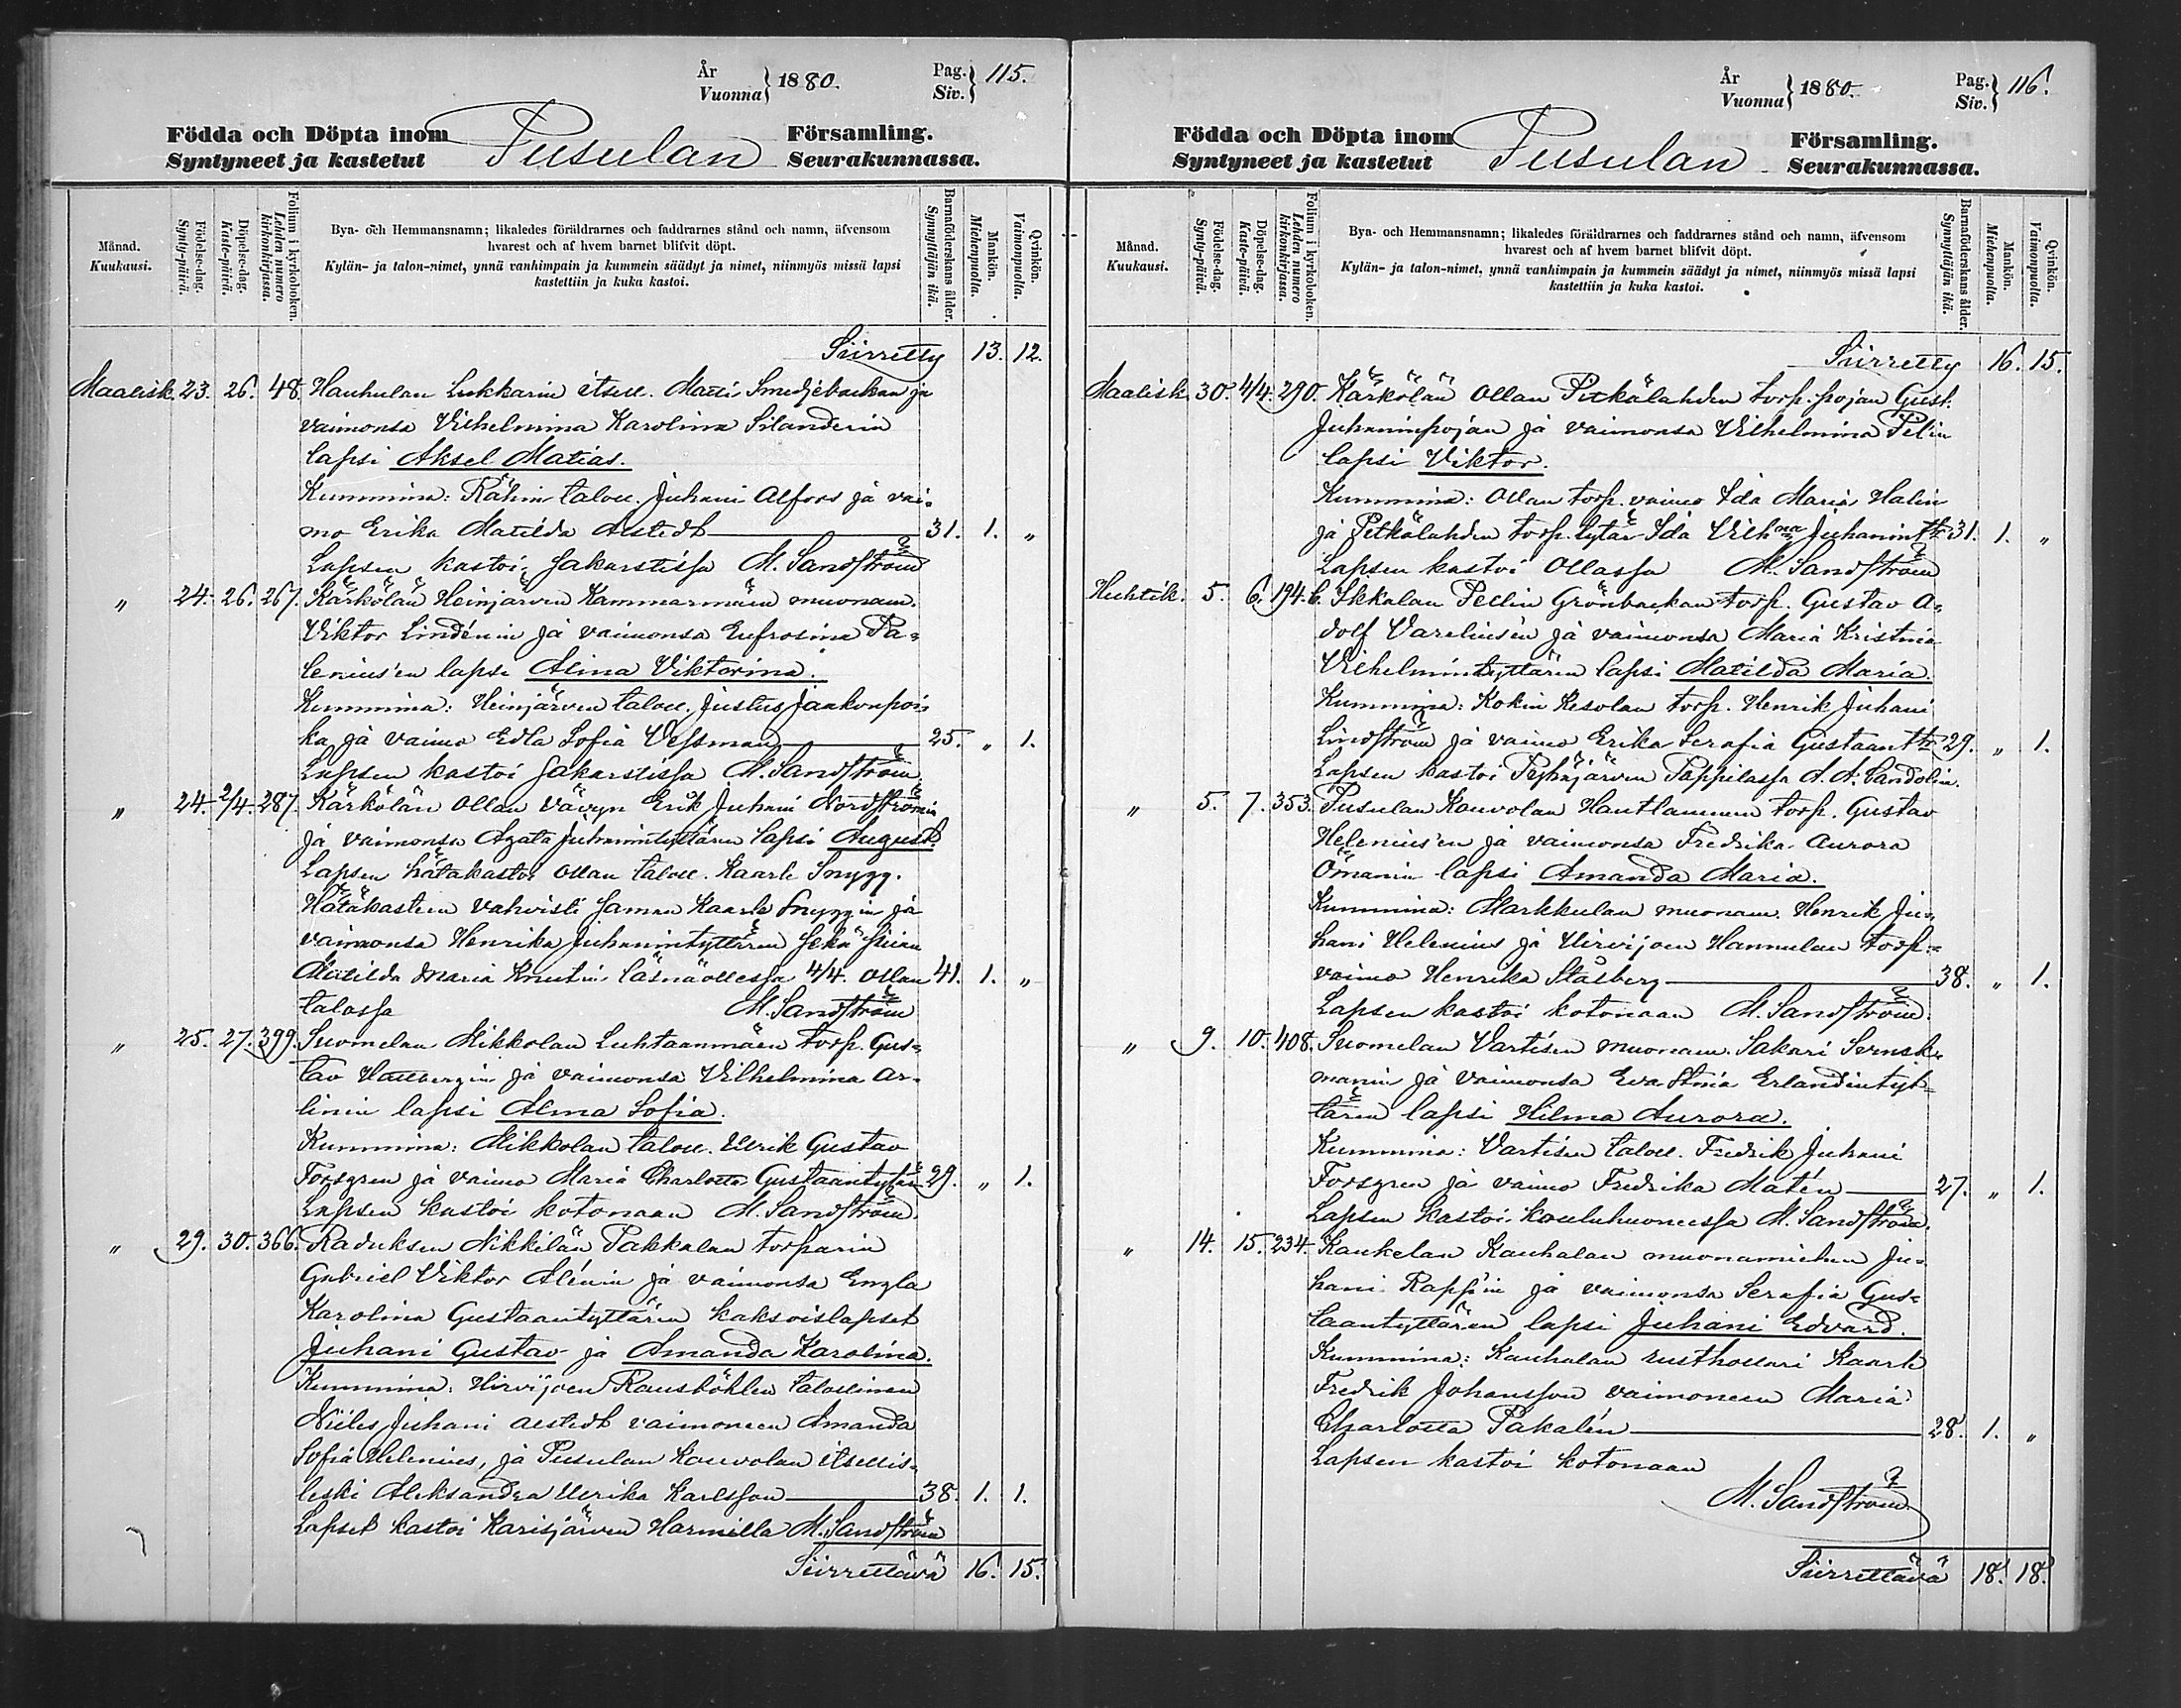 År
Vuonna } 1880.
Pag.
Siv. } 115.
Födda och Döpta inom
Syntyneet ja kastetut
Pusulan
Församling.
Seurakunnassa.
Månad.
Kuukausi.
Födelse-dag.
Synty-päivä.
Döpelse-dag.
Kaste-päivä.
Folium i kyrkoboken.
Lehden numero kirkonkirjassa.
Bya- och Hemmansnamn; likaledes föräldrarnes och faddrarnes stånd och namn, äfvensom
hvarest och af hvem barnet blifvit döpt.
Kylän- ja talon-nimet, ynnä vanhimpain ja kummein säädyt ja nimet, niinmyös missä lapsi
kastettiin ja kuka kastoi.
Barnaföderskans ålder.
Synnyttäjän ikä.
Mankön.
Miehenpuolta.
Qvinkön.
Vaimonpuolta.
Siirretty 13. 12.
Maalisk. 23. 26. 48. Hauhulan Lukkarin itsell. Matti Smedjebackan ja
vaimonsa Vilhelmina Karolina Silanderin
lapsi Aksel Matias.
Kummina: Rähin talon. Juhani Alfors ja vai-
mo Erika Matilda Alstedt 31. 1. „
Lapsen kastoi Jakarstissa M. Sandström
„ 24. 26. 267. Kärkölän Heinjärven Kammarmäen muonam.
Viktor Lindénin ja vaimonsa Eufrosina Pa-
lenius'en lapsi Alina Viktorina.
Kummina: Heinjärven talon. Justus Jaakonpoi-
ka ja vaimo Edla Sofia Vessman 25. „ 1.
Lapsen kastoi Jakarstissa M. Sandström
„ 24. 2/4. 287. Kärkölän Ollan vävyn Erik Juhani Nordströmin
ja vaimonsa Agata Juhanintyttären lapsi August.
Lapsen hätäkastoi Ollan talon. Kaarle Snygg.
Hätäkasteen vahvisti saman Kaarle Snyggin ja
vaimonsa Henrika Juhanintyttären sekä piian
Matilda Maria Knutin läsnäollessa 4/4. Ollan 41. 1. „
talossa M. Sandström
„ 25. 27. 399. Suomelan Mikkolan Luhtaanmäen torp. Gus-
tav Hallbergin ja vaimonsa Vilhelmina Ar-
linin lapsi Alma Sofia.
Kummina: Mikkolan talon. Ulrik Gustav
Forsgren ja vaimo Maria Charlotta Gustaantytär 29. „ 1.
Lapsen kastoi kotonaan M. Sandström.
„ 29. 30. 366. Raduksen Nikkilän Pakkalan torparin
Gabriel Viktor Alénin ja vaimonsa Engla
Karolina Gustaantyttären kaksoislapset
Juhani Gustav ja Amanda Karolina.
Kummina: Hirvijoen Rausböhlen talollinen
Niiles Juhani Alstedt vaimoneen Amanda
Sofia Helenius, ja Pusulan Kouvolan itsellis-
leski Aleksandra Ulrika Karlsson 38. 1. 1.
Lapset kastoi Karisjärven Harmilla M. Sandström
Siirrettävä 16. 15.
År
Vuonna } 1880.
Pag.
Siv. } 116.
Födda och Döpta inom
Syntyneet ja kastetut
Pusulan
Församling.
Seurakunnassa.
Månad.
Kuukausi.
Födelse-dag.
Synty-päivä.
Döpelse-dag.
Kaste-päivä.
Folium i kyrkoboken.
Lehden numero kirkonkirjassa.
Bya- och Hemmansnamn; likaledes föräldrarnes och faddrarnes stånd och namn, äfvensom
hvarest och af hvem barnet blifvit döpt.
Kylän- ja talon-nimet, ynnä vanhimpain ja kummein säädyt ja nimet, niinmyös missä lapsi
kastettiin ja kuka kastoi.
Barnaföderskans ålder.
Synnyttäjän ikä.
Mankön.
Miehenpuolta.
Qvinkön.
Vaimonpuolta.
Siirretty 16. 15.
Maalisk. 30. 4/4. 290. Kärkölän Ollan Pitkälahden torp. pojan Gust.
Juhaninpojan ja vaimonsa Vilhelmina Pelin
lapsi Viktor.
Kummina: Ollan torp. vaimo Ida Maria Halin
ja Pitkälahden torp. tytär Ida Vilhna Juhanintr 31. 1. „
Lapsen kastoi Ollassa M. Sandström
Huhtik. 5. 6. 194. b. Ikkalan Pellin Grönbackan torp. Gustav A-
dolf Varelius'en ja vaimonsa Maria Kristina
Vilhelmintyttären lapsi Matilda Maria.
Kummina: Kokin Kesolan torp. Henrik Juhani
Lindström ja vaimo Erika Serafia Gustaantr 29. „ 1.
Lapsen kastoi Pyhäjärven Pappilassa A. A. Candolin.
„ 5. 7. 353. Pusulan Kouvolan Hautlammen torp. Gustav
Helenius'en ja vaimonsa Fredrika Aurora
Ömanin lapsi Amanda Maria.
Kummina: Markkulan muonam. Henrik Ju-
hani Helenius ja Hirvijoen Hannulan torp.
vaimo Henrika Ståsberg 38. „ 1.
Lapsen kastoi kotonaan M. Sandström.
„ 9. 10. 408. Suomelan Vartisen muonam. Sakari Svensk-
manin ja vaimonsa Eva Stina Erlandintyt-
tären lapsi Hilma Aurora.
Kummina: Vartisen talon. Fredrik Juhani
Forsgren ja vaimo Fredrika Matén 27. „ 1.
Lapsen kastoi kouluhuoneessa M. Sandström.
„ 14. 15. 234. Kaukelan Kauhalan muonamiehen Ju-
hani Rapp'in ja vaimonsa Serafia Gus-
taantyttären lapsi Juhani Edvard.
Kummina: Kauhalan rusthollari Kaarle
Fredrik Johansson vaimoneen Maria
Charlotta Pakalén 28. 1. „
Lapsen kastoi kotonaan
M. Sandström
Siirrettävä 18. 18.